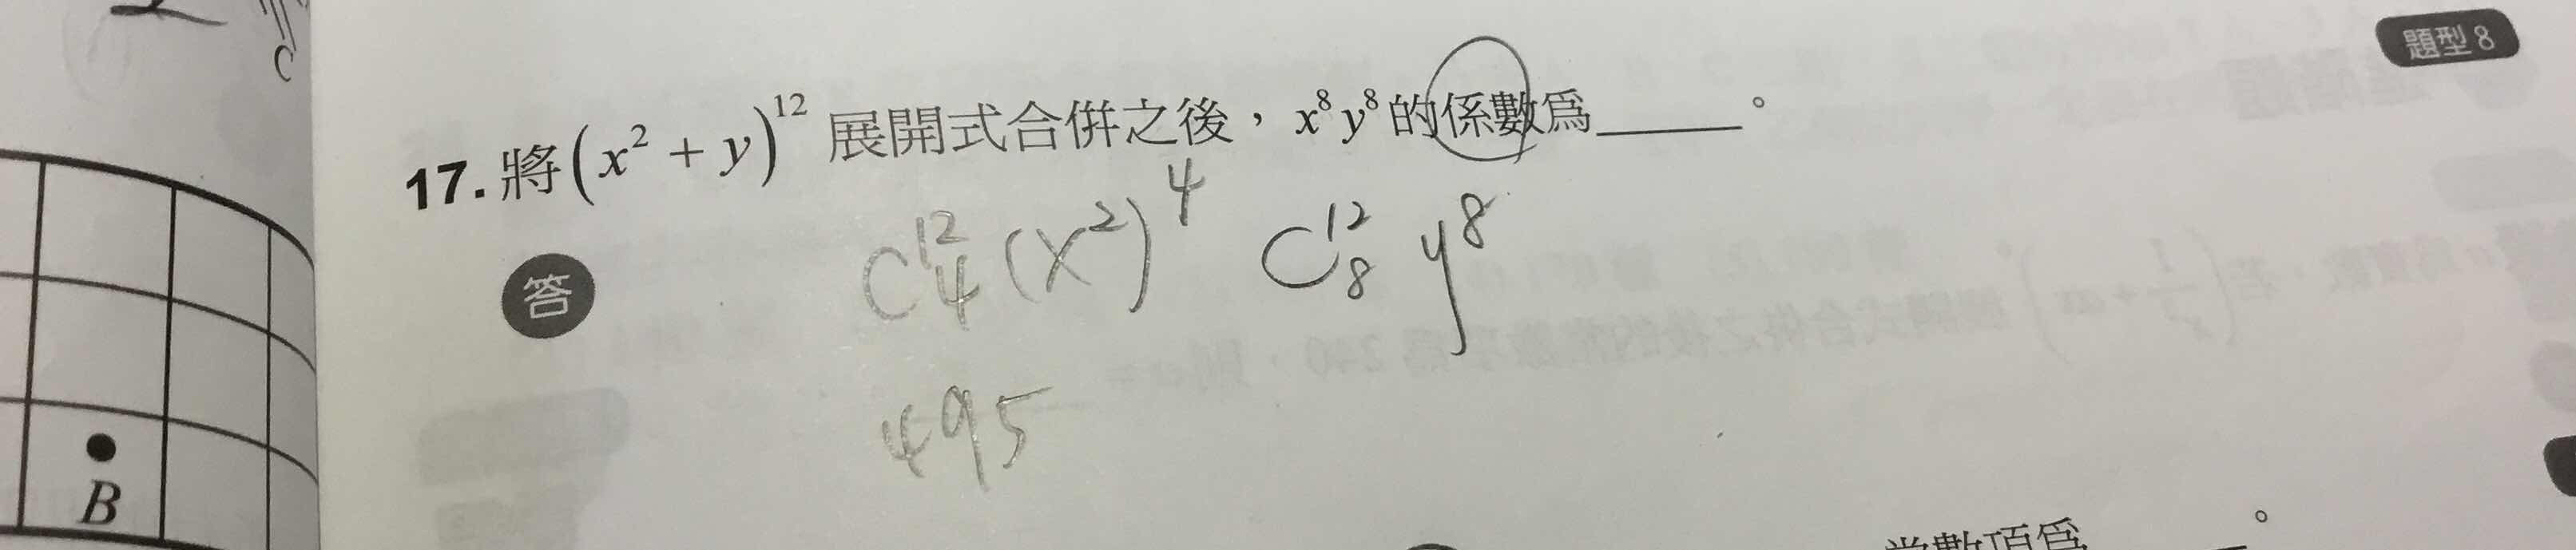 題型8
17. 將(x²+y)¹² 展開式合併之後，x⁸y⁸的係數為____。
答
C¹²₄(x²)⁴ C¹²₈ y⁸
495
C
B
數項為____。